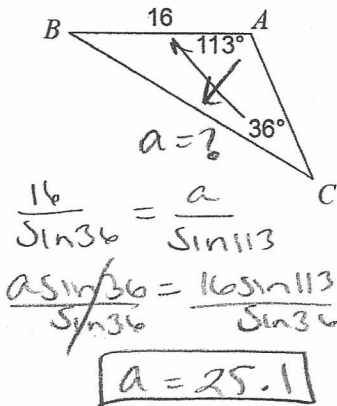 16
B A
113°
36°
a = ?
C
16/sin36 = a/sin113
asin36/sin36 = 16sin113/sin36
a = 25.1